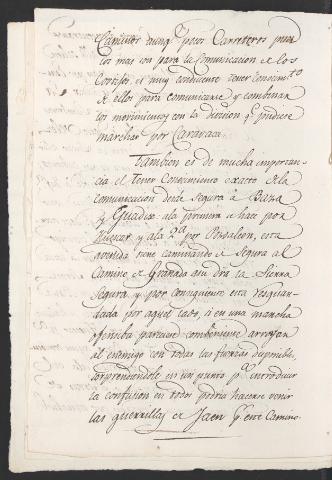 Caminos aunq.e pocos Carreteros pues
los mas son para la comunicacion de los
Cortijos es muy conducente tener conocim.to
de ellos para comunicarse y combinar
los movimientos con la division q.e pudiere
marchar por Caravaca.
Tambien es de mucha importan-
cia el tener Conocimiento exacto de la
comunicacion desde Segura à Baza
y Guadix a la primera se hace por
Huescar y a la 2.a por Pozaleon, esta
avenida viene caminando de Segura al
Camino de Granada
Segura, y por consiguiente esta resguar-
dada por aquel lado, si en una marcha
ofensiva pareciese combeniente arrojar
al enemigo con todas las fuerzas disponibles,
sorprendiendole en un punto p.a introducir
la confusion en todos podria hacerse venir
las guerrillas de Jaen p.r este Camino.